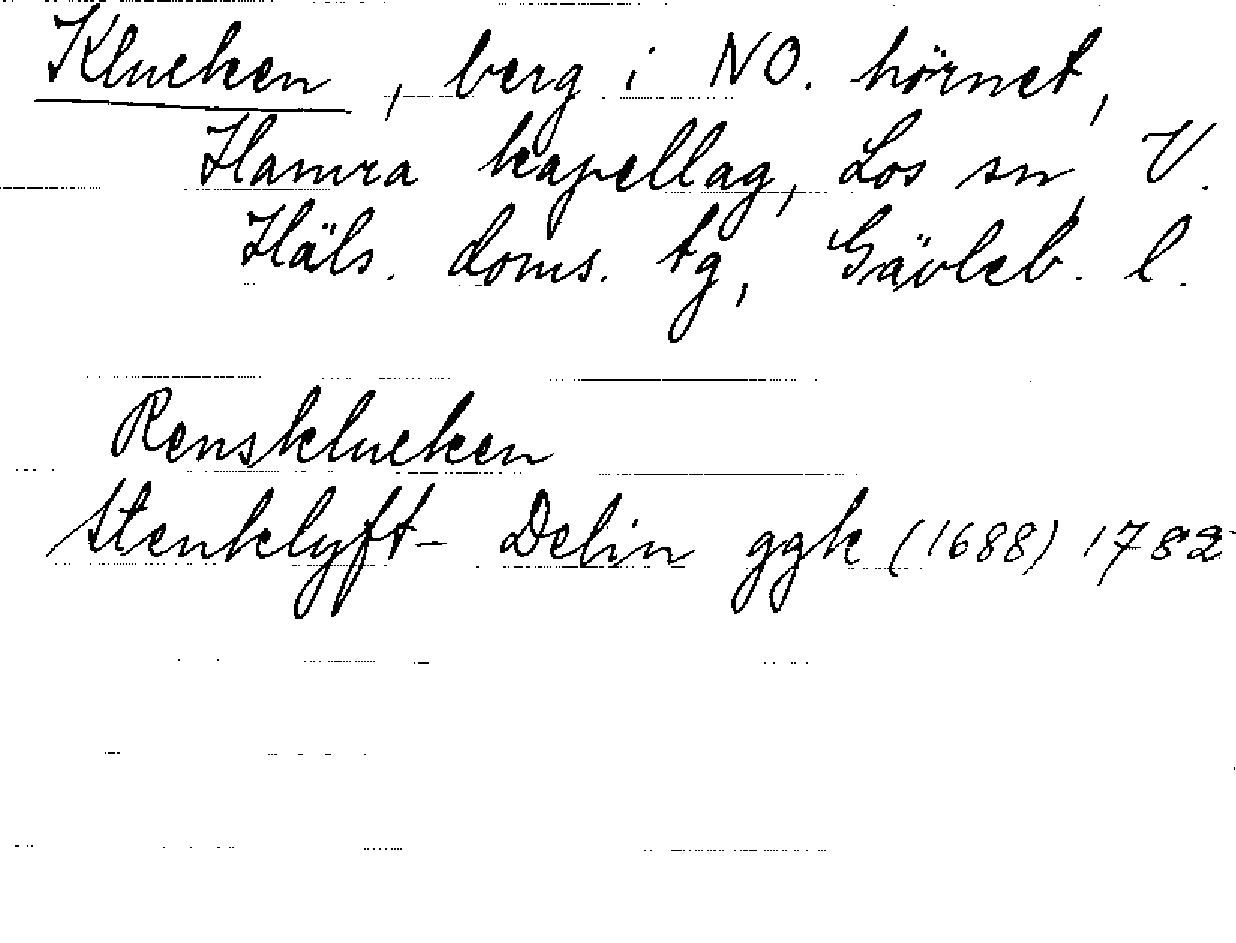 Klucken, berg i NO. hörnet,
Hamra kapellag, Los sn, V.
Häls. doms. tg, Gävleb. l.
Rensklucken
Stenklyft- Delin ggk (1688) 1782